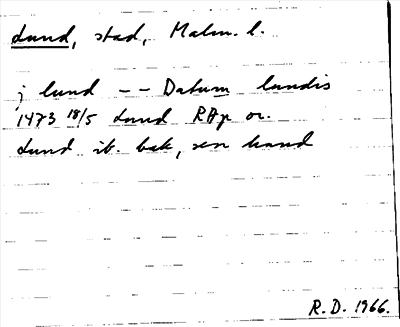 Lund, stad, Malm. l.
j lund -- Datum lundis
1473 18/5 Lund RAp or.
Lund ib. bak, sen hand
R. D. 1966.